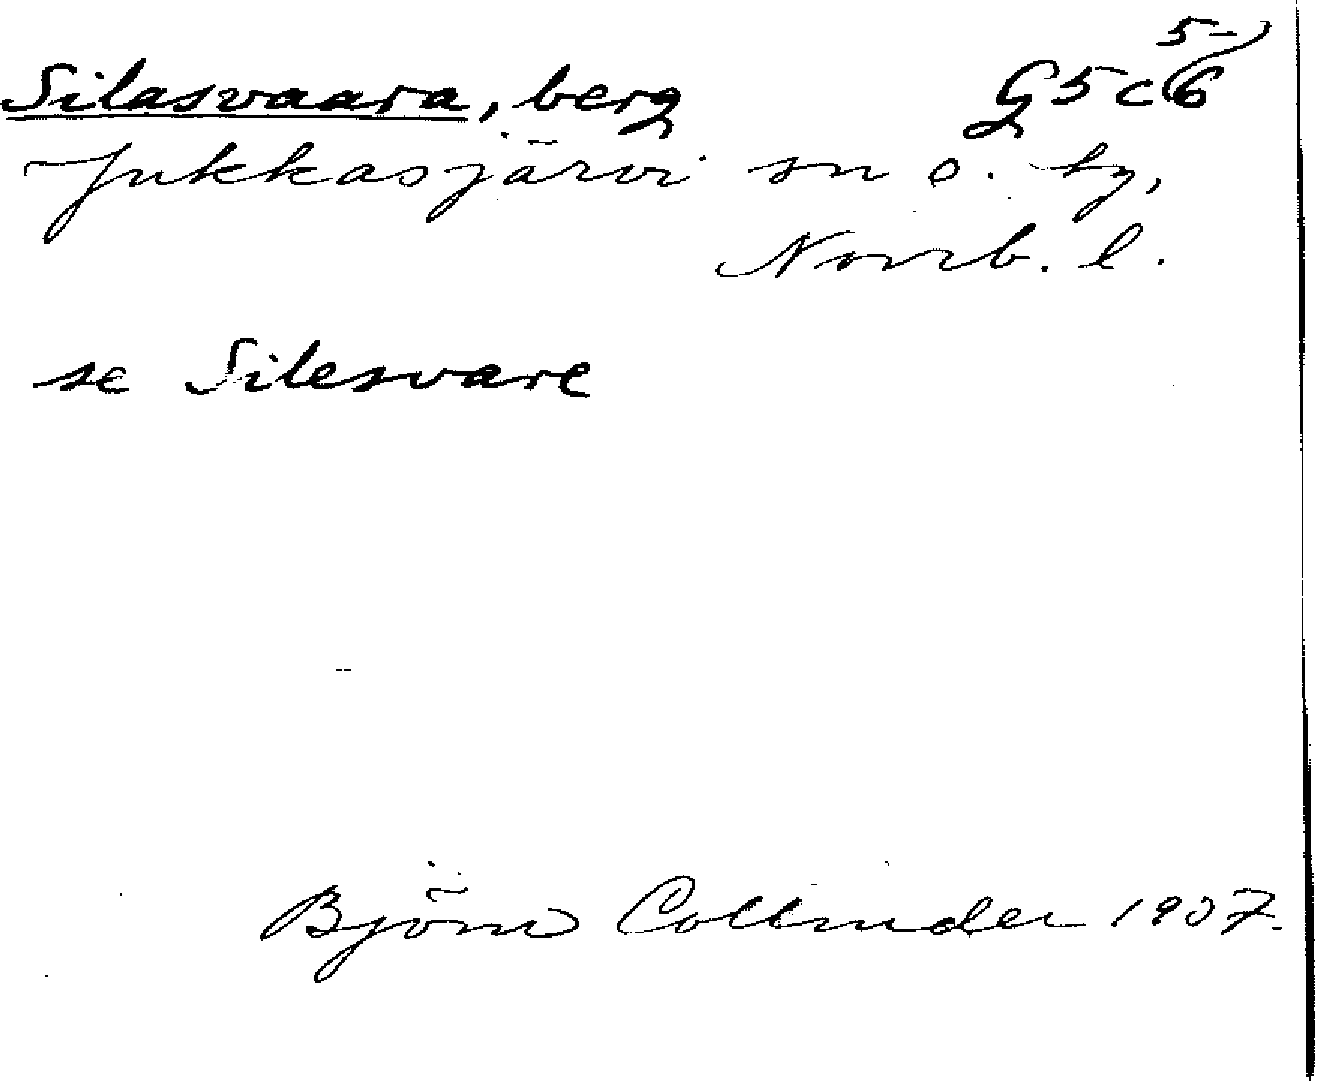 Silasvaara, berg G5c 5-6
Jukkasjärvi sn o. tg,
Norrb. l.
se Silesvare
Björn Collinder 1907.